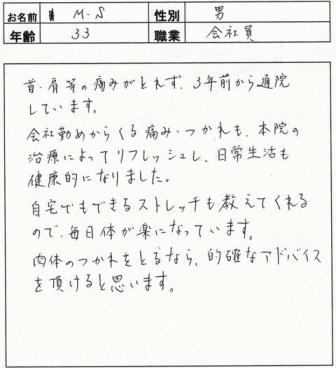 お名前 M・S 性別 男
年齢 33 職業 会社員
首・肩等の痛みがとれず、3年前から通院
しています。
会社勤めからくる痛み・つかれも、本院の
治療によってリフレッシュし、日常生活も
健康的になりました。
自宅でもできるストレッチも教えてくれる
ので、毎日体が楽になっています。
肉体のつかれをとるなら、的確なアドバイス
を頂けると思います。